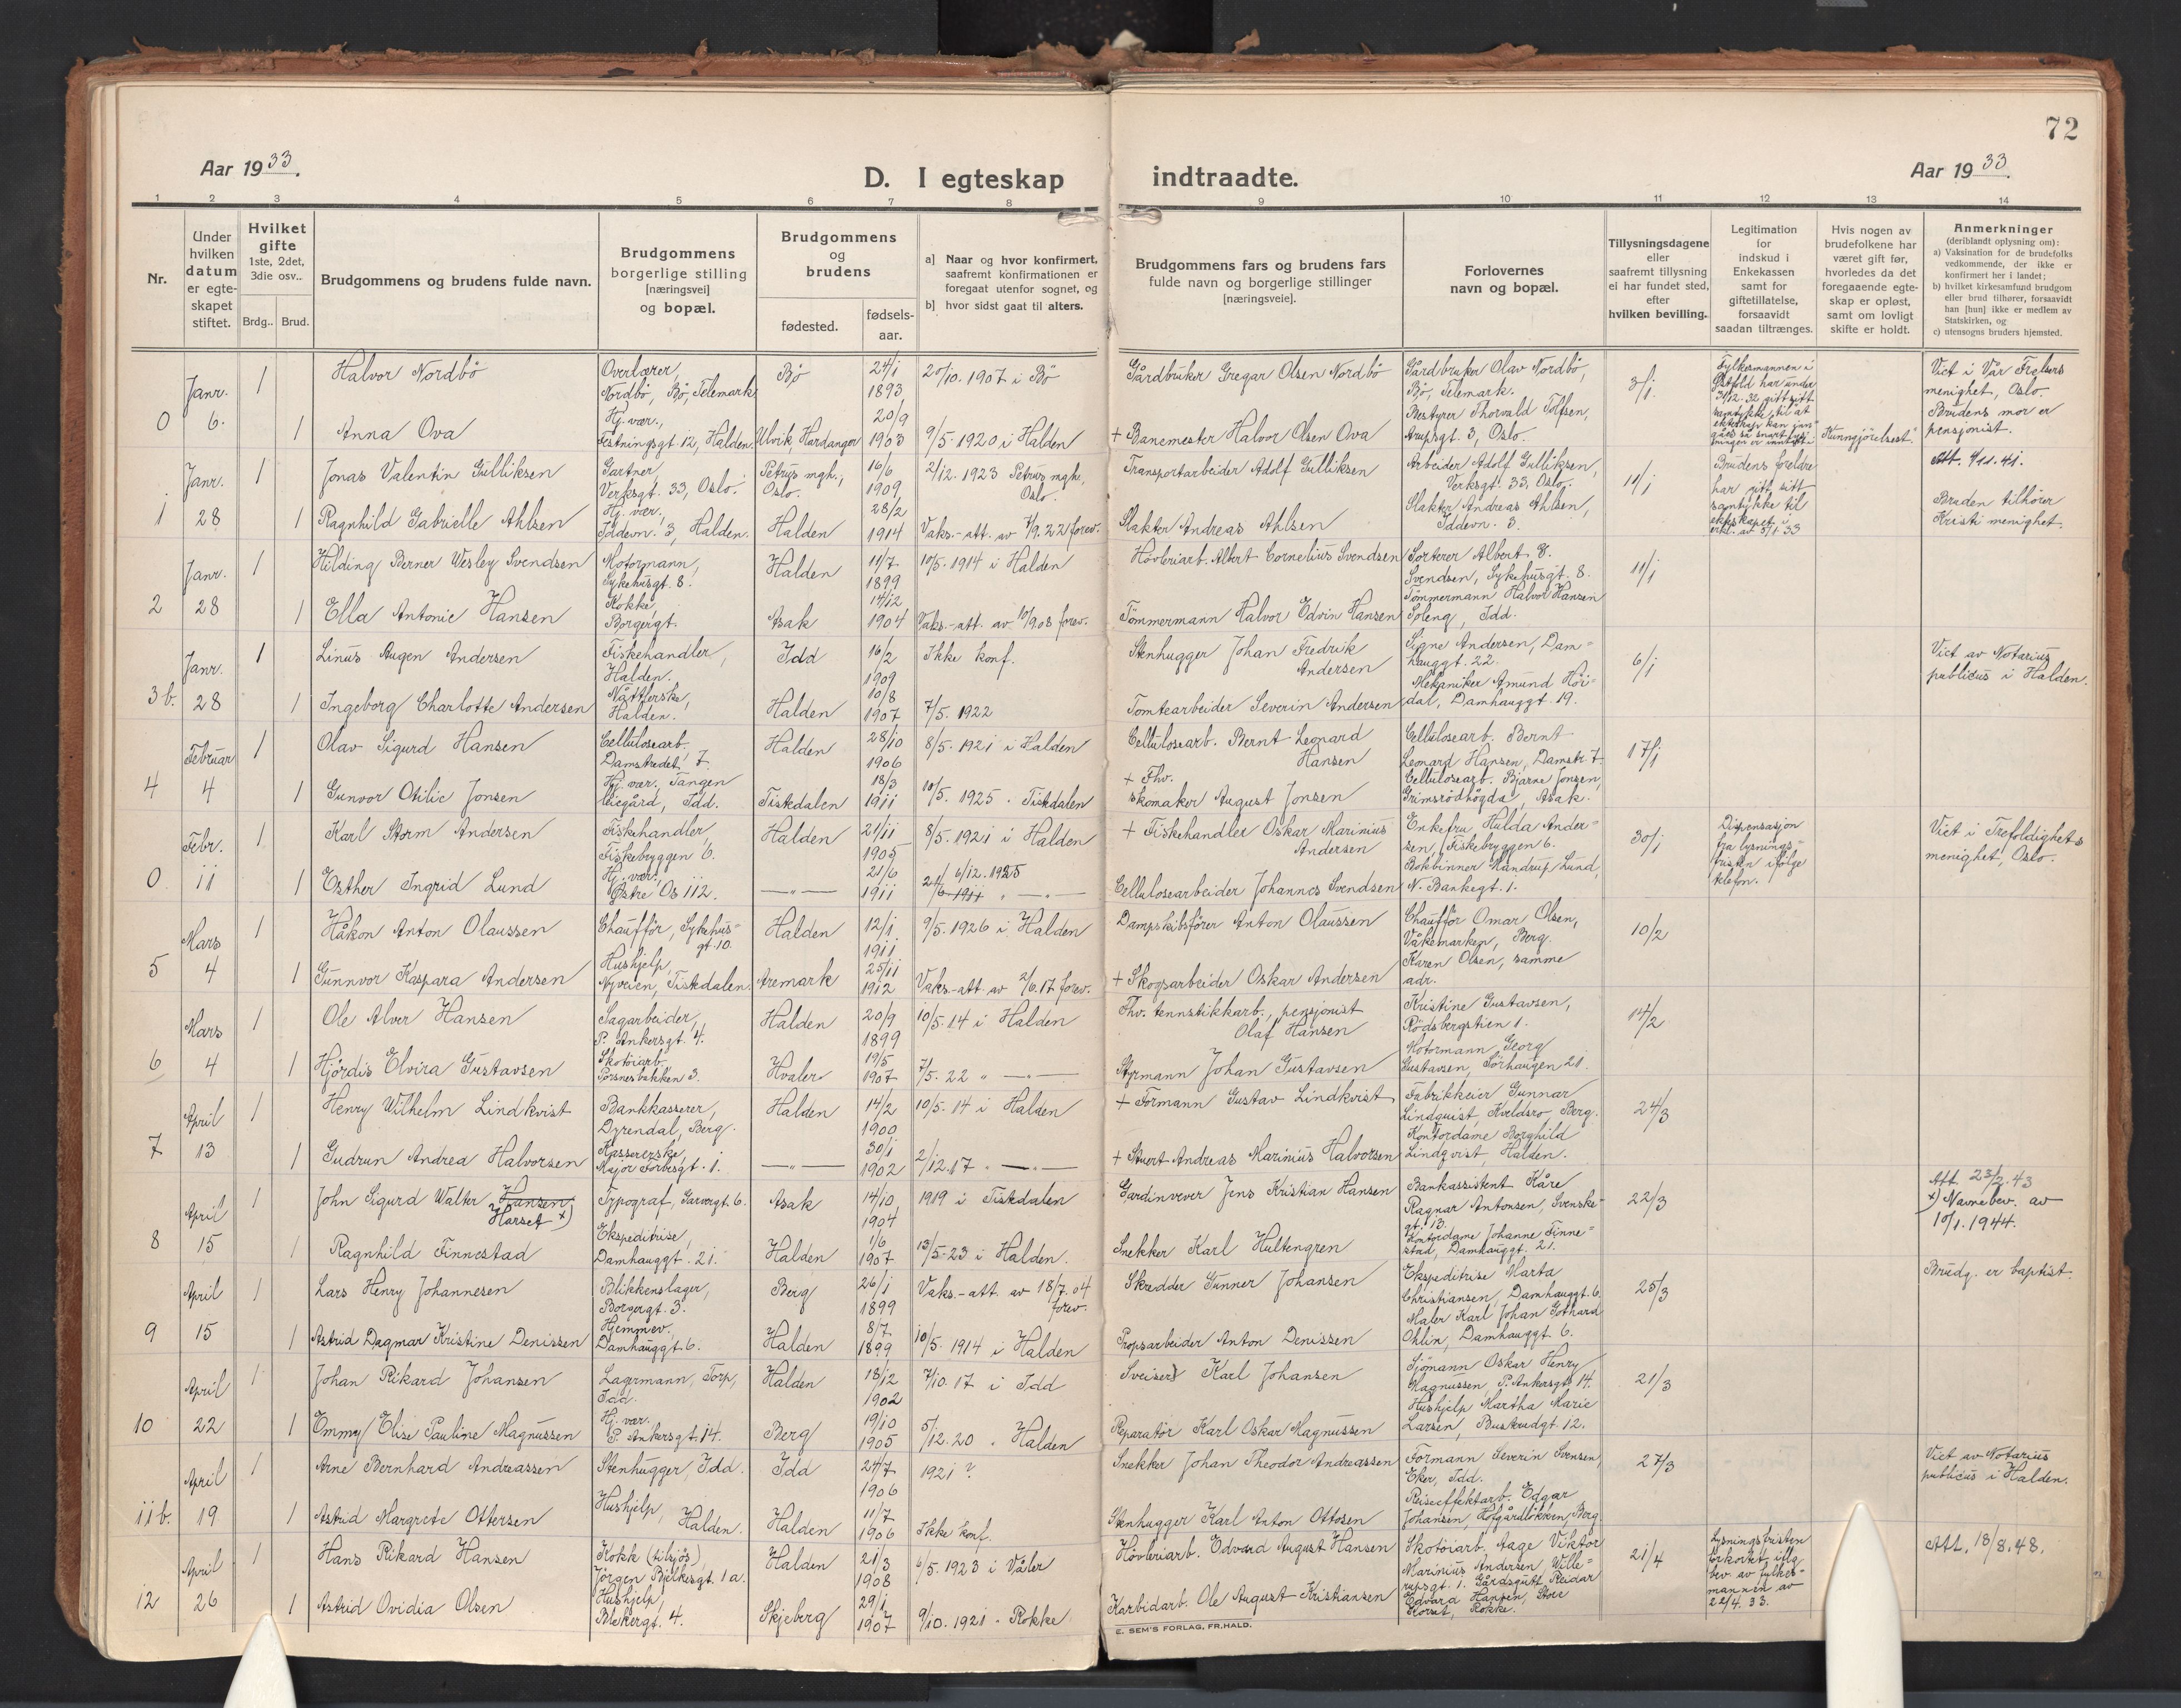 72
Aar 1933.
D. I egteskap indtraadte.
Aar 1933.
1 2 3 4 5 6 7 8 9 10 11 12 13 14
Nr.
Under hvilken datum er egteskapet stiftet.
Hvilket gifte 1ste, 2det, 3die osv..
Brdg.. Brud.
Brudgommens og brudens fulde navn.
Brudgommens borgerlige stilling [næringsvei] og bopæl.
Brudgommens og brudens
fødested.
fødsels-aar.
a] Naar og hvor konfirmert, saafremt konfirmationen er foregaat utenfor sognet, og
b] hvor sidst gaat til alters.
Brudgommens fars og brudens fars fulde navn og borgerlige stillinger [næringsveie].
Forlovernes navn og bopæl.
Tillysningsdagene eller saafremt tillysning ei har fundet sted, efter hvilken bevilling.
Legitimation for indskud i Enkekassen samt for giftetillatelse, forsaavidt saadan tiltrænges.
Hvis nogen av brudefolkene har været gift før, hvorledes da det foregaaende egteskap er opløst, samt om lovligt skifte er holdt.
Anmerkninger (deriblandt oplysning om):
a) Vaksination for de brudefolks vedkommende, der ikke er konfirmert her i landet;
b) hvilket kirkesamfund brudgom eller brud tilhører, forsaavidt han [hun] ikke er medlem av Statskirken, og
c) utensogns bruders hjemsted.
Janr. 1 Halvor Nordbö Overlærer, Nordbö, Bö, Telemark Bö 24/1 1893 20/10. 1907 i Bö Gårdbruker Gregar Olsen Nordbö Gårdbruker Olav Nordbö, Bö, Telemark. 3/1 Fylkesmannen i Østfold har under 31/12. 32 gitt sitt samtykke til at ekteskap kan Viet i Vår Frelsers menighet, Oslo.
0 6. 1 Anna Ova Hj. vær., Festningsgt. 12, Halden. Ulvik, Hardanger 20/9 1903 9/5. 1920 i Halden + Banemester Halvor Olsen Ova Bestyrer Thorvald Tolfsen, Arupsgt. 3, Oslo. så snart "Kunngjörelsest." Brudens mor er pensjonist.
Janr. 1 Jonas Valentin Gulliksen Gartner, Verksgt. 33, Oslo. Petrus mgh., Oslo. 16/6 1909 2/12. 1923 Petrus mgh., Oslo. Transportarbeider Adolf Gulliksen Arbeider Adolf Gulliksen, Verksgt. 33, Oslo. 11/1 Brudens foreldre har gitt sitt samtykke til ekteskapet i erkl. av 5/1 33 Att. 4/11. 41.
1 28 1 Ragnhild Gabrielle Ahlsen Hj. vær., Iddevn. 3, Halden. Halden 28/2 1914 Vaks.-att. av 7/9. 22 forev. Slakter Andreas Ahlsen Slakter Andreas Ahlsen, Iddevn. 3. Bruden tilhörer Kristi menighet.
Janr. 1 Hilding Berner Wesley Svendsen Motormann, Sykehusgt. 8. Halden 11/7 1899 10/5. 1914 i Halden Hövleriarb. Albert Cornelius Svendsen Sorterer Albert E. Svendsen, Sykehusgt. 8. 11/1
2 28 1 Ella Antonie Hansen Kokke, Borgergt. Asak 14/12 1904 Vaks.-att. av 10/9.08 forev. Tömmermann Halvor Edvin Hansen Tömmermann Halvor Hansen Soleng, Idd.
Janr. 1 Linus Augen Andersen Fiskehandler, Halden. Idd 16/2 1909 Ikke konf. Stenhugger Johan Fredrik Andersen Signe Andersen, Damhauggt. 22. 6/1 Viet av Notarius publicus i Halden.
3b. 28 1 Ingeborg Charlotte Andersen Nåtlerske, Halden. Halden 10/8 1907 7/5. 1922 Tomtearbeider Severin Andersen Mekaniker Amund Höidal, Damhauggt. 19.
Februar 1 Olav Sigurd Hansen Cellulosearb., Damstredet 7. Halden 28/10 1906 8/5. 1921 i Halden Cellulosearb. Bernt Leonard Hansen Cellulosearb. Bernt Leonard Hansen, Damstr. 7. 17/1
4 4 1 Gunvor Otilie Jonsen Hj. vær. Tangen leiegård, Idd. Tistedalen 18/3 1911 10/5. 1925 - Tistedalen + Fhv. skomaker August Jonsen Cellulosearb. Bjarne Jonsen, Grimsrödhögda, Asak.
Febr. 1 Karl Storm Andersen Fiskehandler, Fiskebryggen 6. Halden 21/11 1905 8/5. 1921 i Halden + Fiskehandler Oskar Marinius Andersen Enkefru Hulda Andersen, Fiskebryggen 6. 30/1 Dispensasjon fra lysningsfristen ifölge telefon. Viet i Trefoldighets menighet, Oslo.
0 11 1 Esther Ingrid Lund Hj. vær., Østre Os 112. —"— 21/6 1911 6/12. 1925 —"— Cellulosearbeider Johannes Svendsen Bokbinner Mandrup Lund, N. Bankegt. 1.
Mars 1 Håkon Anton Olaussen Chaufför, Sykehusgt. 10. Halden 12/1 1911 9/5. 1926 i Halden Dampskibsförer Anton Olaussen Chaufför Omar Olsen, Våkemarken, Berg. 10/2
5 4 1 Gunnvor Kaspara Andersen Hushjelp, Nyveien, Tistedalen. Aremark 25/11 1912 Vaks.-att. av 2/6. 17 forev. + Skogsarbeider Oskar Andersen Karen Olsen, samme adr.
Mars 1 Ole Alver Hansen Sagarbeider, P. Ankersgt. 4. Halden 20/9 1899 10/5. 14 i Halden Fhv. tennstikkarb., pensjonist Olaf Hansen Kristine Gustavsen, Rödsbergstien 1. 14/2
6 4 1 Hjördis Elvira Gustavsen Skotöiarb. Porsnesbakken 3. Hvaler 19/5 1907 7/5. 22 " —"— Styrmann Johan Gustavsen Motormann Georg Gustavsen, Sörhaugen 21.
April 1 Henry Wilhelm Lindkvist Bankkasserer, Dyrendal, Berg. Halden 14/2 1900 10/5. 14 i Halden + Formann Gustav Lindkvist Fabrikkeier Gunnar Lindquist, Kveldsro, Berg. 24/3
7 13 1 Gudrun Andrea Halvorsen Kassererske, Major Forbesgt. 1. —"— 30/1 1902 2/12. 17 " —"— + Stuert Andreas Marinius Halvorsen Kontordame Borghild Lindqvist, Halden.
April 1 John Sigurd Walter Hansen Harset x) Typograf, Garvergt. 6. Asak 14/10 1904 1919 i Tistedalen Gardinvever Jens Kristian Hansen Bankassistent Kåre Ragnar Antonsen, Svenskegt. 13. 22/3 Att. 23/2. 43 x) Navnebev. av 10/1. 1944.
8 15 1 Ragnhild Finnestad Ekspeditrise, Damhauggt. 21. Halden 1/6 1907 13/5-23 i Halden. Snekker Karl Hultengren Kontordame Johanne Finnestad, Damhauggt. 21.
April 1 Lars Henry Johannesen Blikkenslager, Borgergt. 3. Berg 26/1 1899 Vaks.-att. av 18/7. 04 forev. Skredder Gunner Johansen Ekspeditrise Marta Christiansen, Damhauggt. 6. 25/3 Brudg. er baptist.
9 15 1 Astrid Dagmar Kristine Denissen Hjemmev. Damhauggt. 6. Halden 8/7 1899 10/5. 1914 i Halden Propsarbeider Anton Denissen Maler Karl Johan Gothard Ohlin, Damhauggt. 6.
April 1 Johan Rikard Johansen Lagermann, Torp, Idd. Halden 18/12 1902 7/10. 17 i Idd Sveiser Karl Johansen Sjömann Oskar Henry Magnussen, P. Ankersgt. 14. 21/3
10 22 1 Emmy Elise Pauline Magnussen Hj. vær. P. Ankersgt. 14. Berg 19/10 1905 5/12. 20 " Halden Reparatör Karl Oskar Magnussen Hushjelp Martha Marie Larsen, Buskrudgt. 12.
April 1 Arne Bernhard Andreassen Stenhugger, Idd. Idd 24/7 1906 1921 ? Snekker Johan Theodor Andreassen Formann Severin Svensen, Eker, Idd. 27/3 Viet av Notarius publicus i Halden.
11b. 19 1 Astrid Margrete Ottersen Hushjelp, Halden. Halden 11/7 1906 Ikke konf. Stenhugger Karl Anton Ottosen Reiseeffektarb. Edgar Johansen, Hofgårdlökken, Berg
April 1 Hans Rikard Hansen Kokk (tilsjös), Jörgen Bjelkesgt. 1a. Halden 21/3 1908 6/5. 1923 i Våler Hövleriarb. Edvard August Hansen Skotöiarb. Aage Viktor Marinius Andersen, Willerupsgt. 1. 21/4 Lysningsfristen forkortet iflg. bev. av fylkesmannen av 22/4. 33. Att. 18/8. 48.
12 26 1 Astrid Ovidia Olsen Hushjelp, Blekergt. 4. Skjeberg 29/1 1907 9/10. 1921 - Rokke Karbidarb. Ole August Kristiansen Gårdsgutt Reidar Edvard Hansen, Store Korset, Rokke.
E. SEM'S FORLAG, FR.HALD.